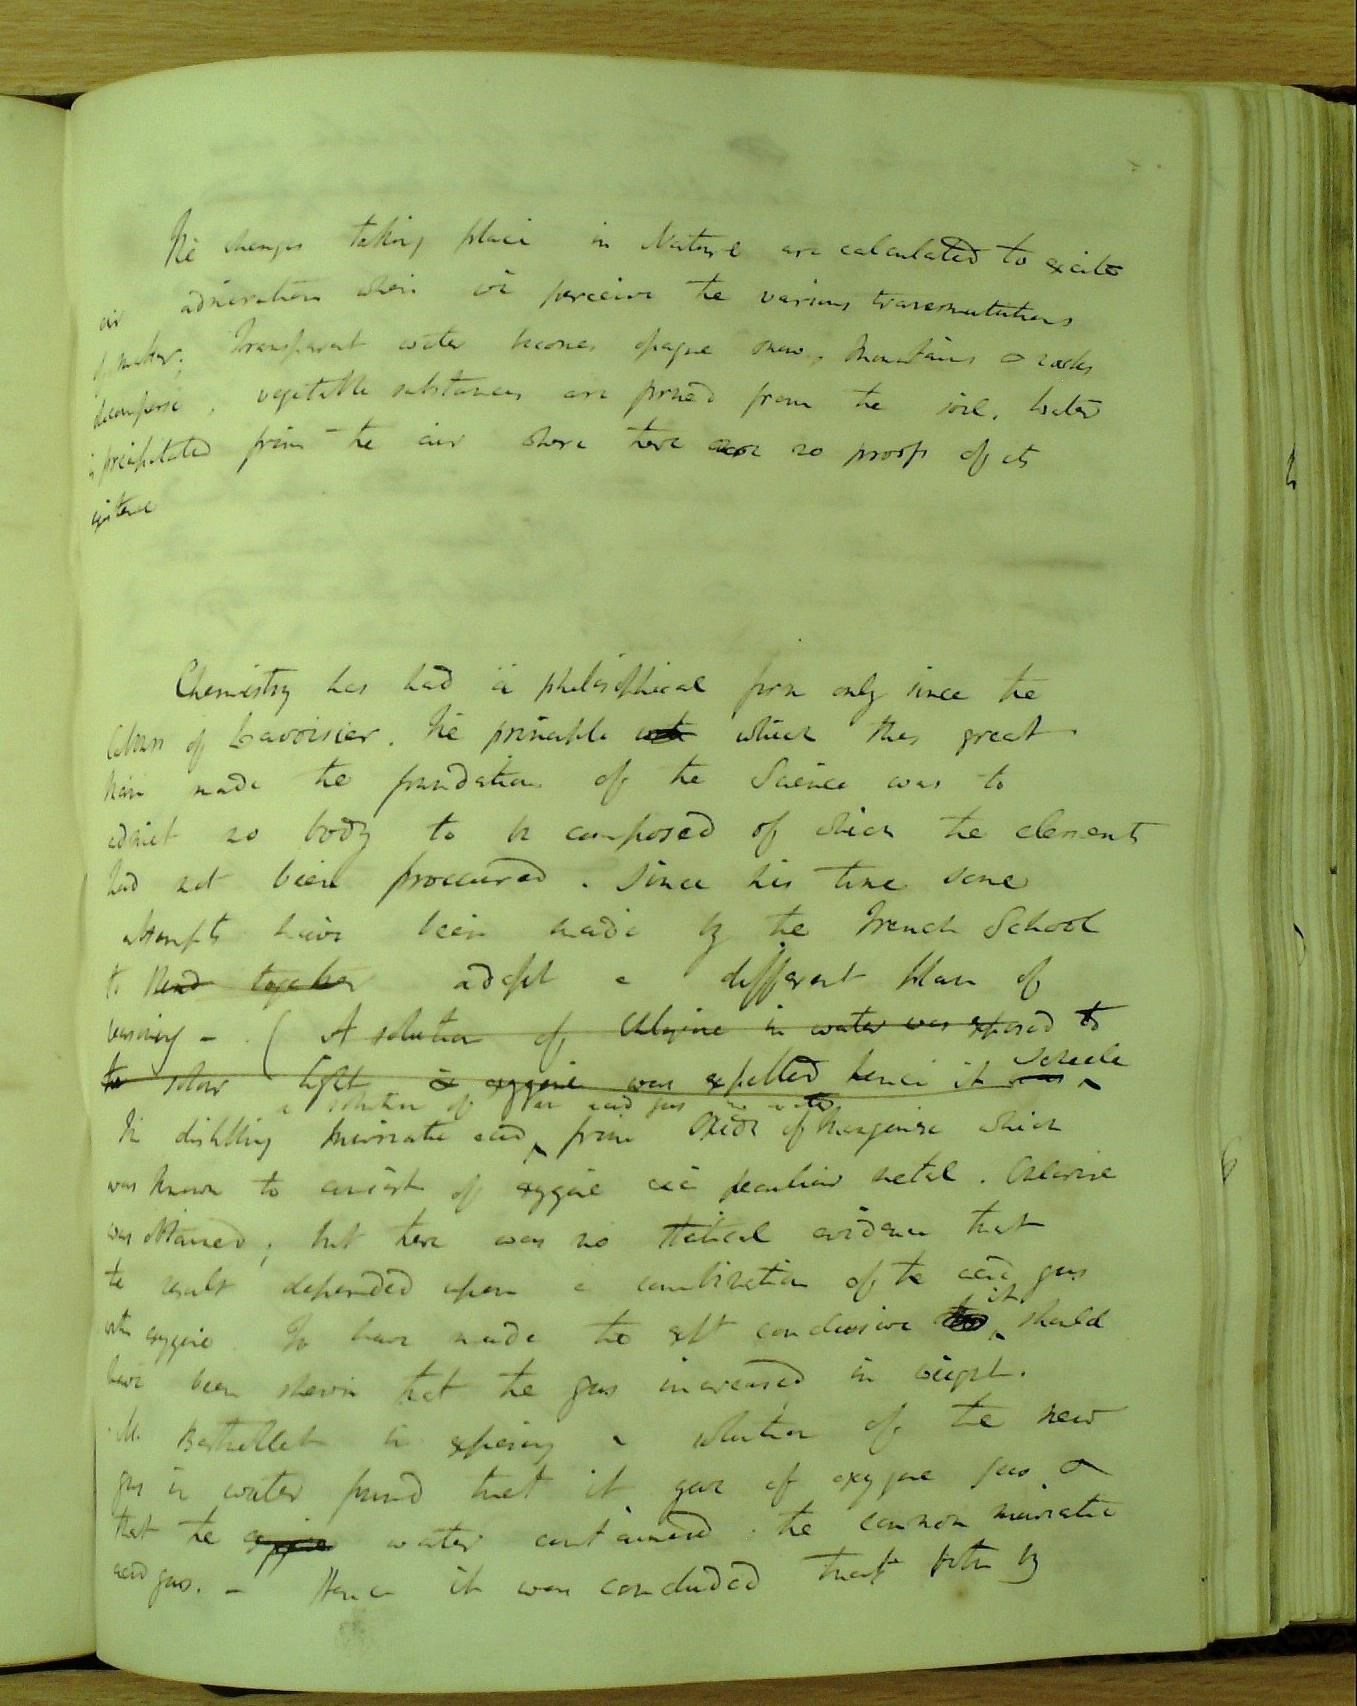 The changes taking place in Nature are calculated to excite
our admiration when we perceive the various transmutations
of matter. Transparent water becomes opaque snow, mountains & rocks
decompose, vegetable substances are formed from the soil, water
is precipitated from the air where there are no proofs of its
existence
Chemistry has had a philosophical form only since the
labours of Lavoisier. The principle which this great
Man made the foundation of the Science was to
admit no body to be composed of which the elements
had not been procured. Since his time some
attempts have been made by the French School
to together adopt a different plan of
reasoning - ( A solution of Chlorine in water was exposed to
to solar light oxygene was expelled hence it was Scheele
a solution of acid gas in water
In distilling muriatic acid from Oxide of Manganese which
was known to consist of oxygene and a peculiar metal. Chlorine
was obtained; but there was no statical evidence that
the result depended upon a combination of the acid gas
with oxygene. To have made the expt conclusive it should
have been shewn that the gas increased in weight.
M. Berthollet in exposing a solution of the new
gas in water found that it gave of oxygene gas &
that the oxygene water contained the common muriatic
acid gas. - Hence it was concluded that both by